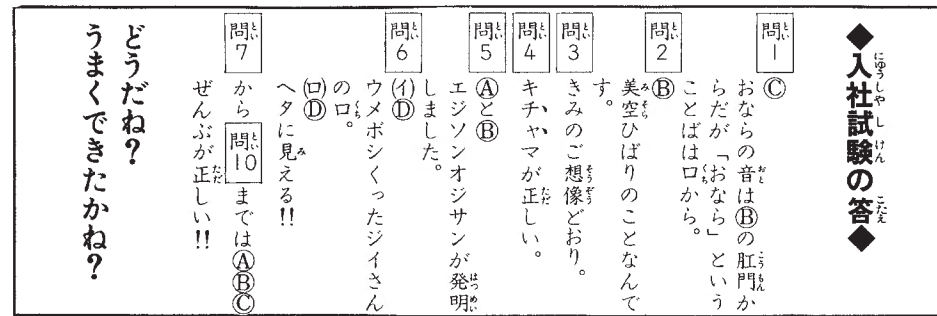 ◆入社試験の答◆
問1 Ⓒ
おならの音はⒷの肛門か
らだが「おなら」という
ことばは口から。
問2 Ⓑ
美空ひばりのことなんで
す。
問3 きみのご想像どおり。
問4 キチャマが正しい。
問5 ⒶとⒷ
エジソンオジサンが発明
しました。
問6 ㋑Ⓓ
ウメボシくったジイさん
の口。
㋺Ⓓ
ヘタに見える!!
問7 から 問10 まではⒶⒷⒸ
ぜんぶが正しい!!
どうだね?
うまくできたかね?